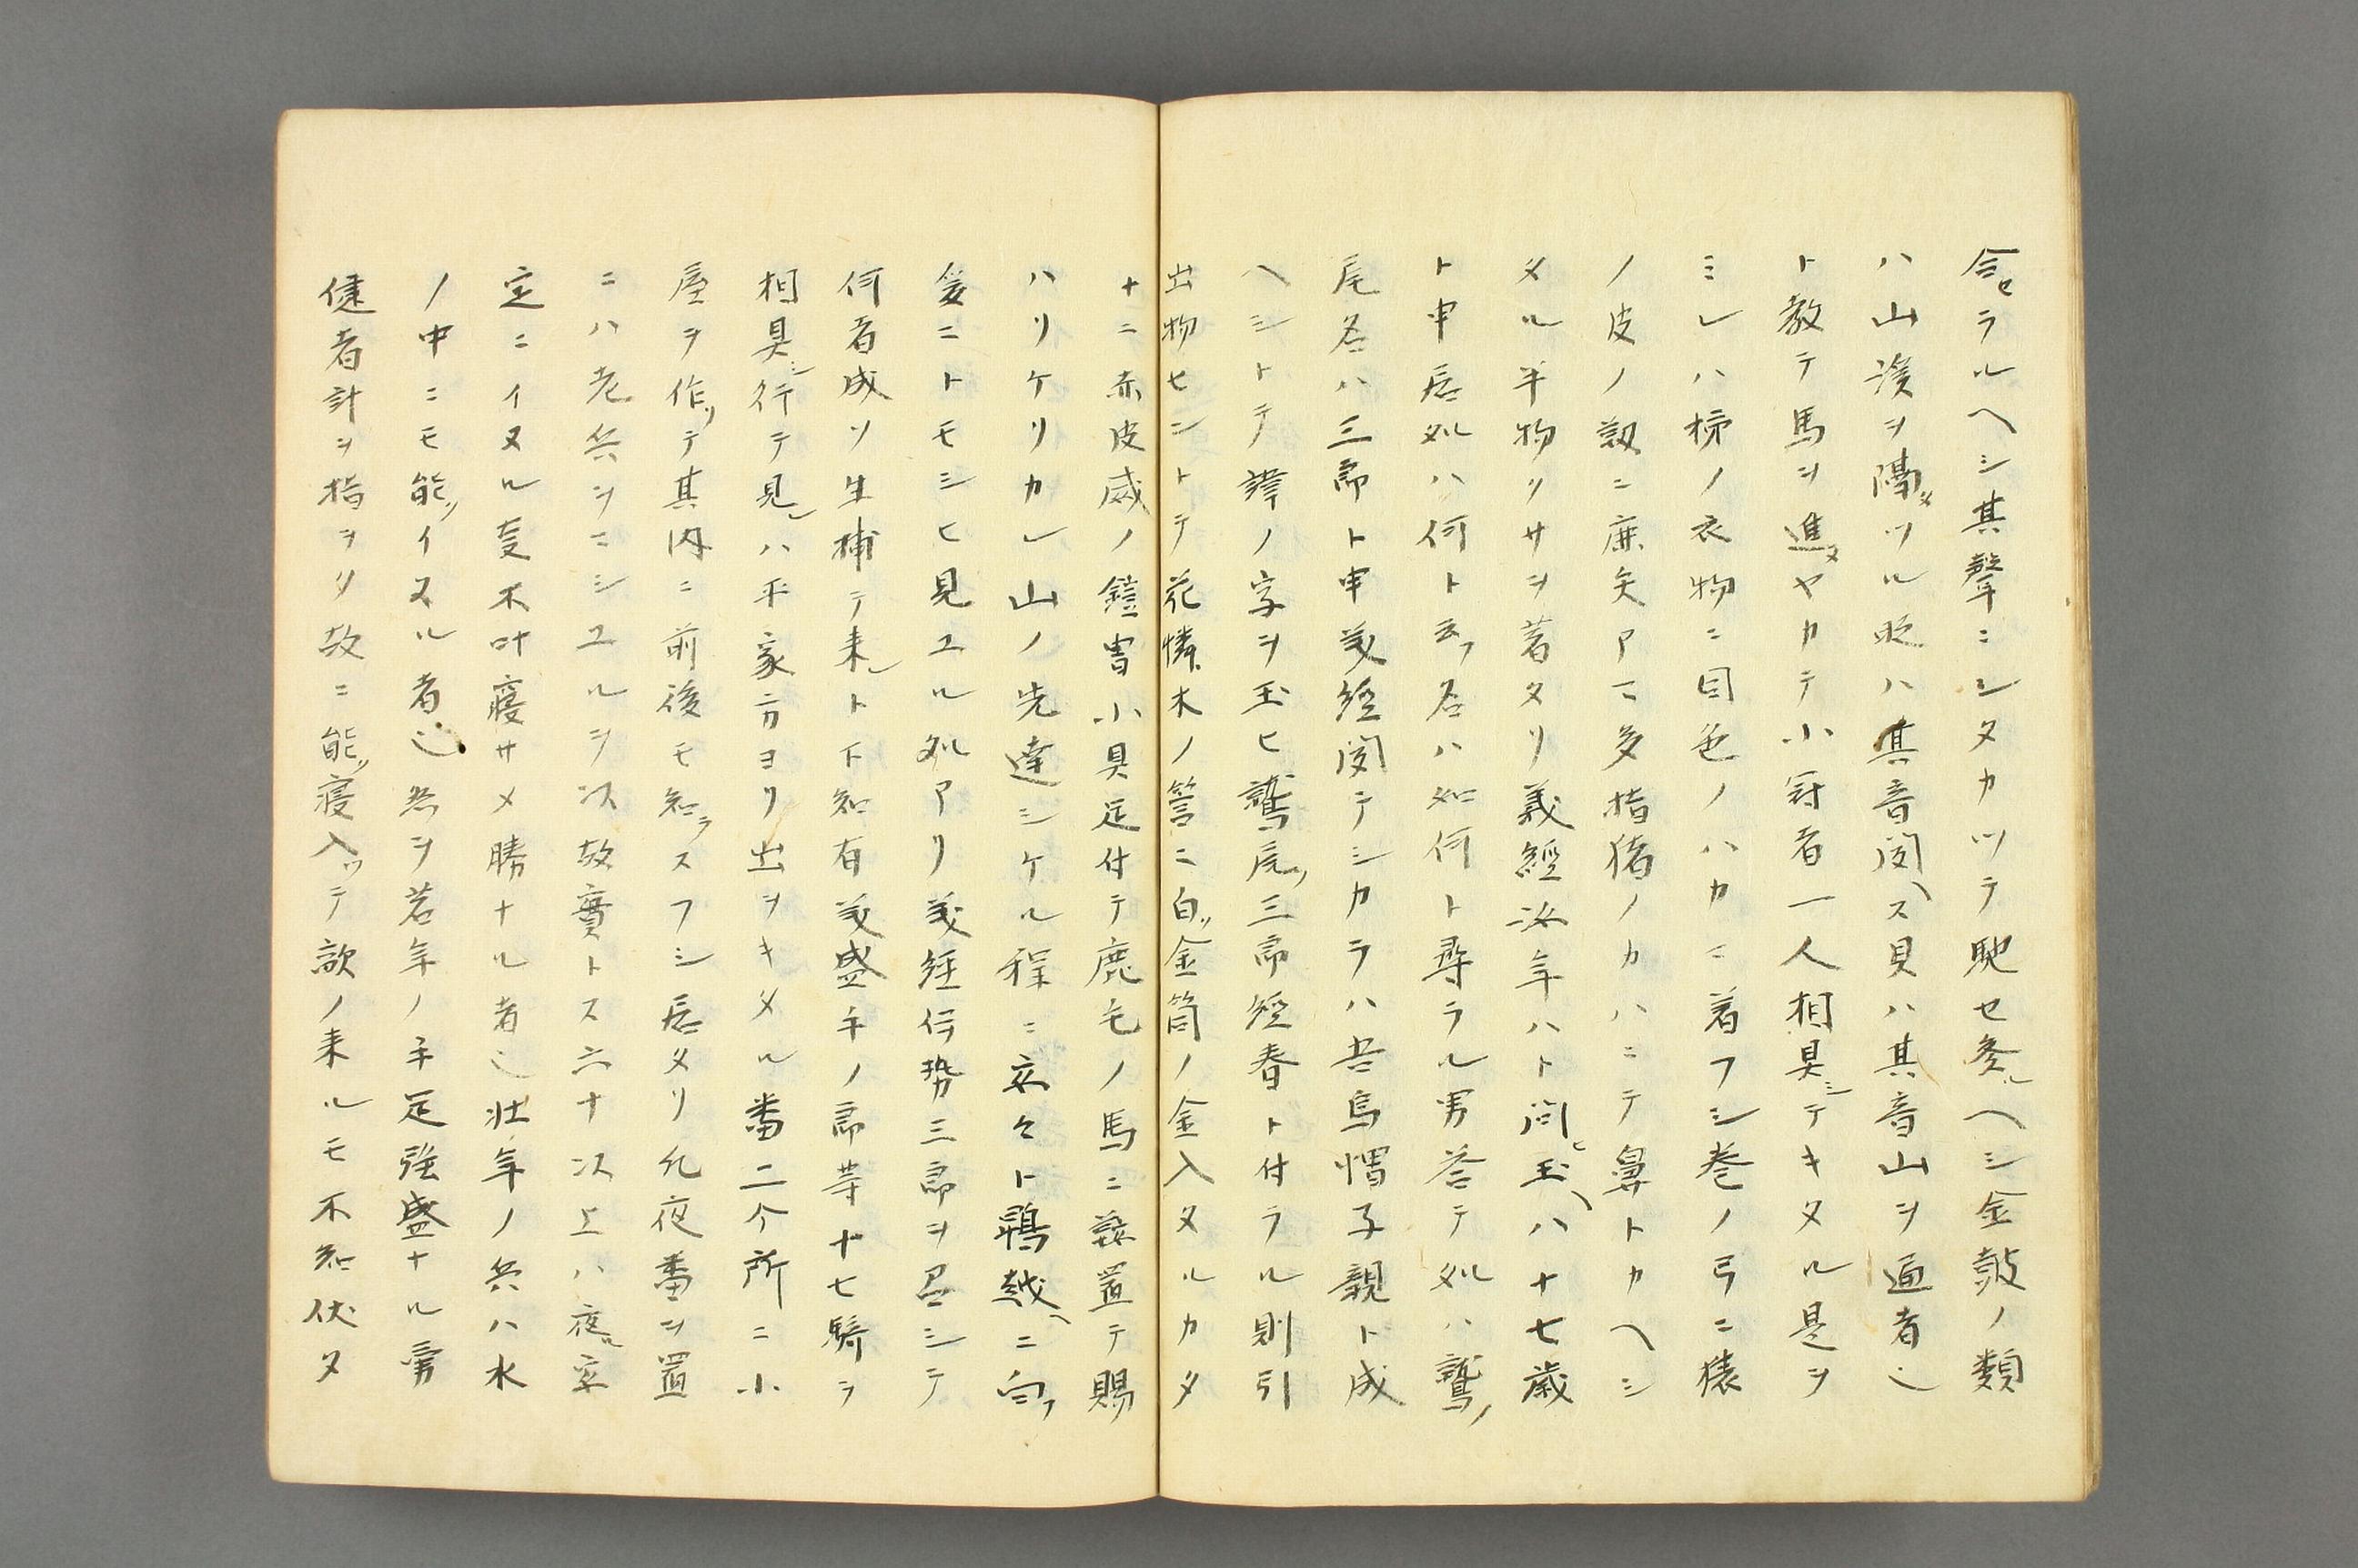 合セラルヘシ其聲ニシタカツテ馳セ参ルヘシ金鼓ノ類
ハ山渓ヲ隔メツル時ハ其音聞ヘス貝ハ其音山ヲ通者也
ト教テ馬ヲ進メヤカテ小冠者一人相具シテキタル是ヲ
ミレハ柿ノ衣物ニ同色ノハカニ着フシ巻ノ弓ニ猿
ノ皮ノ靱ニ鹿矢アマ多指猪ノカハニテ鼻トカヘシ
タル半物リサヲ著タリ義經汝年ハト問ヒ玉ヘハ十七歳
ト申居処ハ何ト云フ名ハ如何ト尋ラル男答テ処ハ鷲ノ
尾名ハ三郎ト申義經聞テシカラハ吾烏帽子親ト成
ヘシトテ諱ノ字ヲ玉ヒ鷲尾ノ三郎經春ト付ラル則引
出物センテ花憐木ノ管ニ白ツ金筒ノ金入タルカタ
ナニ赤皮威ノ鎧冑小具足付テ鹿毛ノ馬ニ鞍置テ賜
ハリケリカレ山ノ先達シケル程ニ安々ト鵯越ヘニ向フ
爰ニトモシヒ見ユル処アリ義經伊勢三郎ヲ召シテ
何者成ソ生捕テ来レト下知有義盛手ノ郎等十七騎ヲ
相具シ行テ見レハ平家方ヨリ出ヲキタル番二个所ニ小
屋ヲ作ツテ其内ニ前後モ知ラスフシ居タリ凡夜番ヲ置
ニハ老兵ヲニシユルヲ以故實トス六十以上ハ夜ル安
定ニイヌル叓不叶寝サメ勝ナル者也壮年ノ兵ハ水
ノ中ニモ能ツイヌル者也然ヲ若年ノ手足強盛ナル勇
健者計ヲ指ヲク故ニ能ツ寝入ツテ敵ノ来ルモ不知伏タ